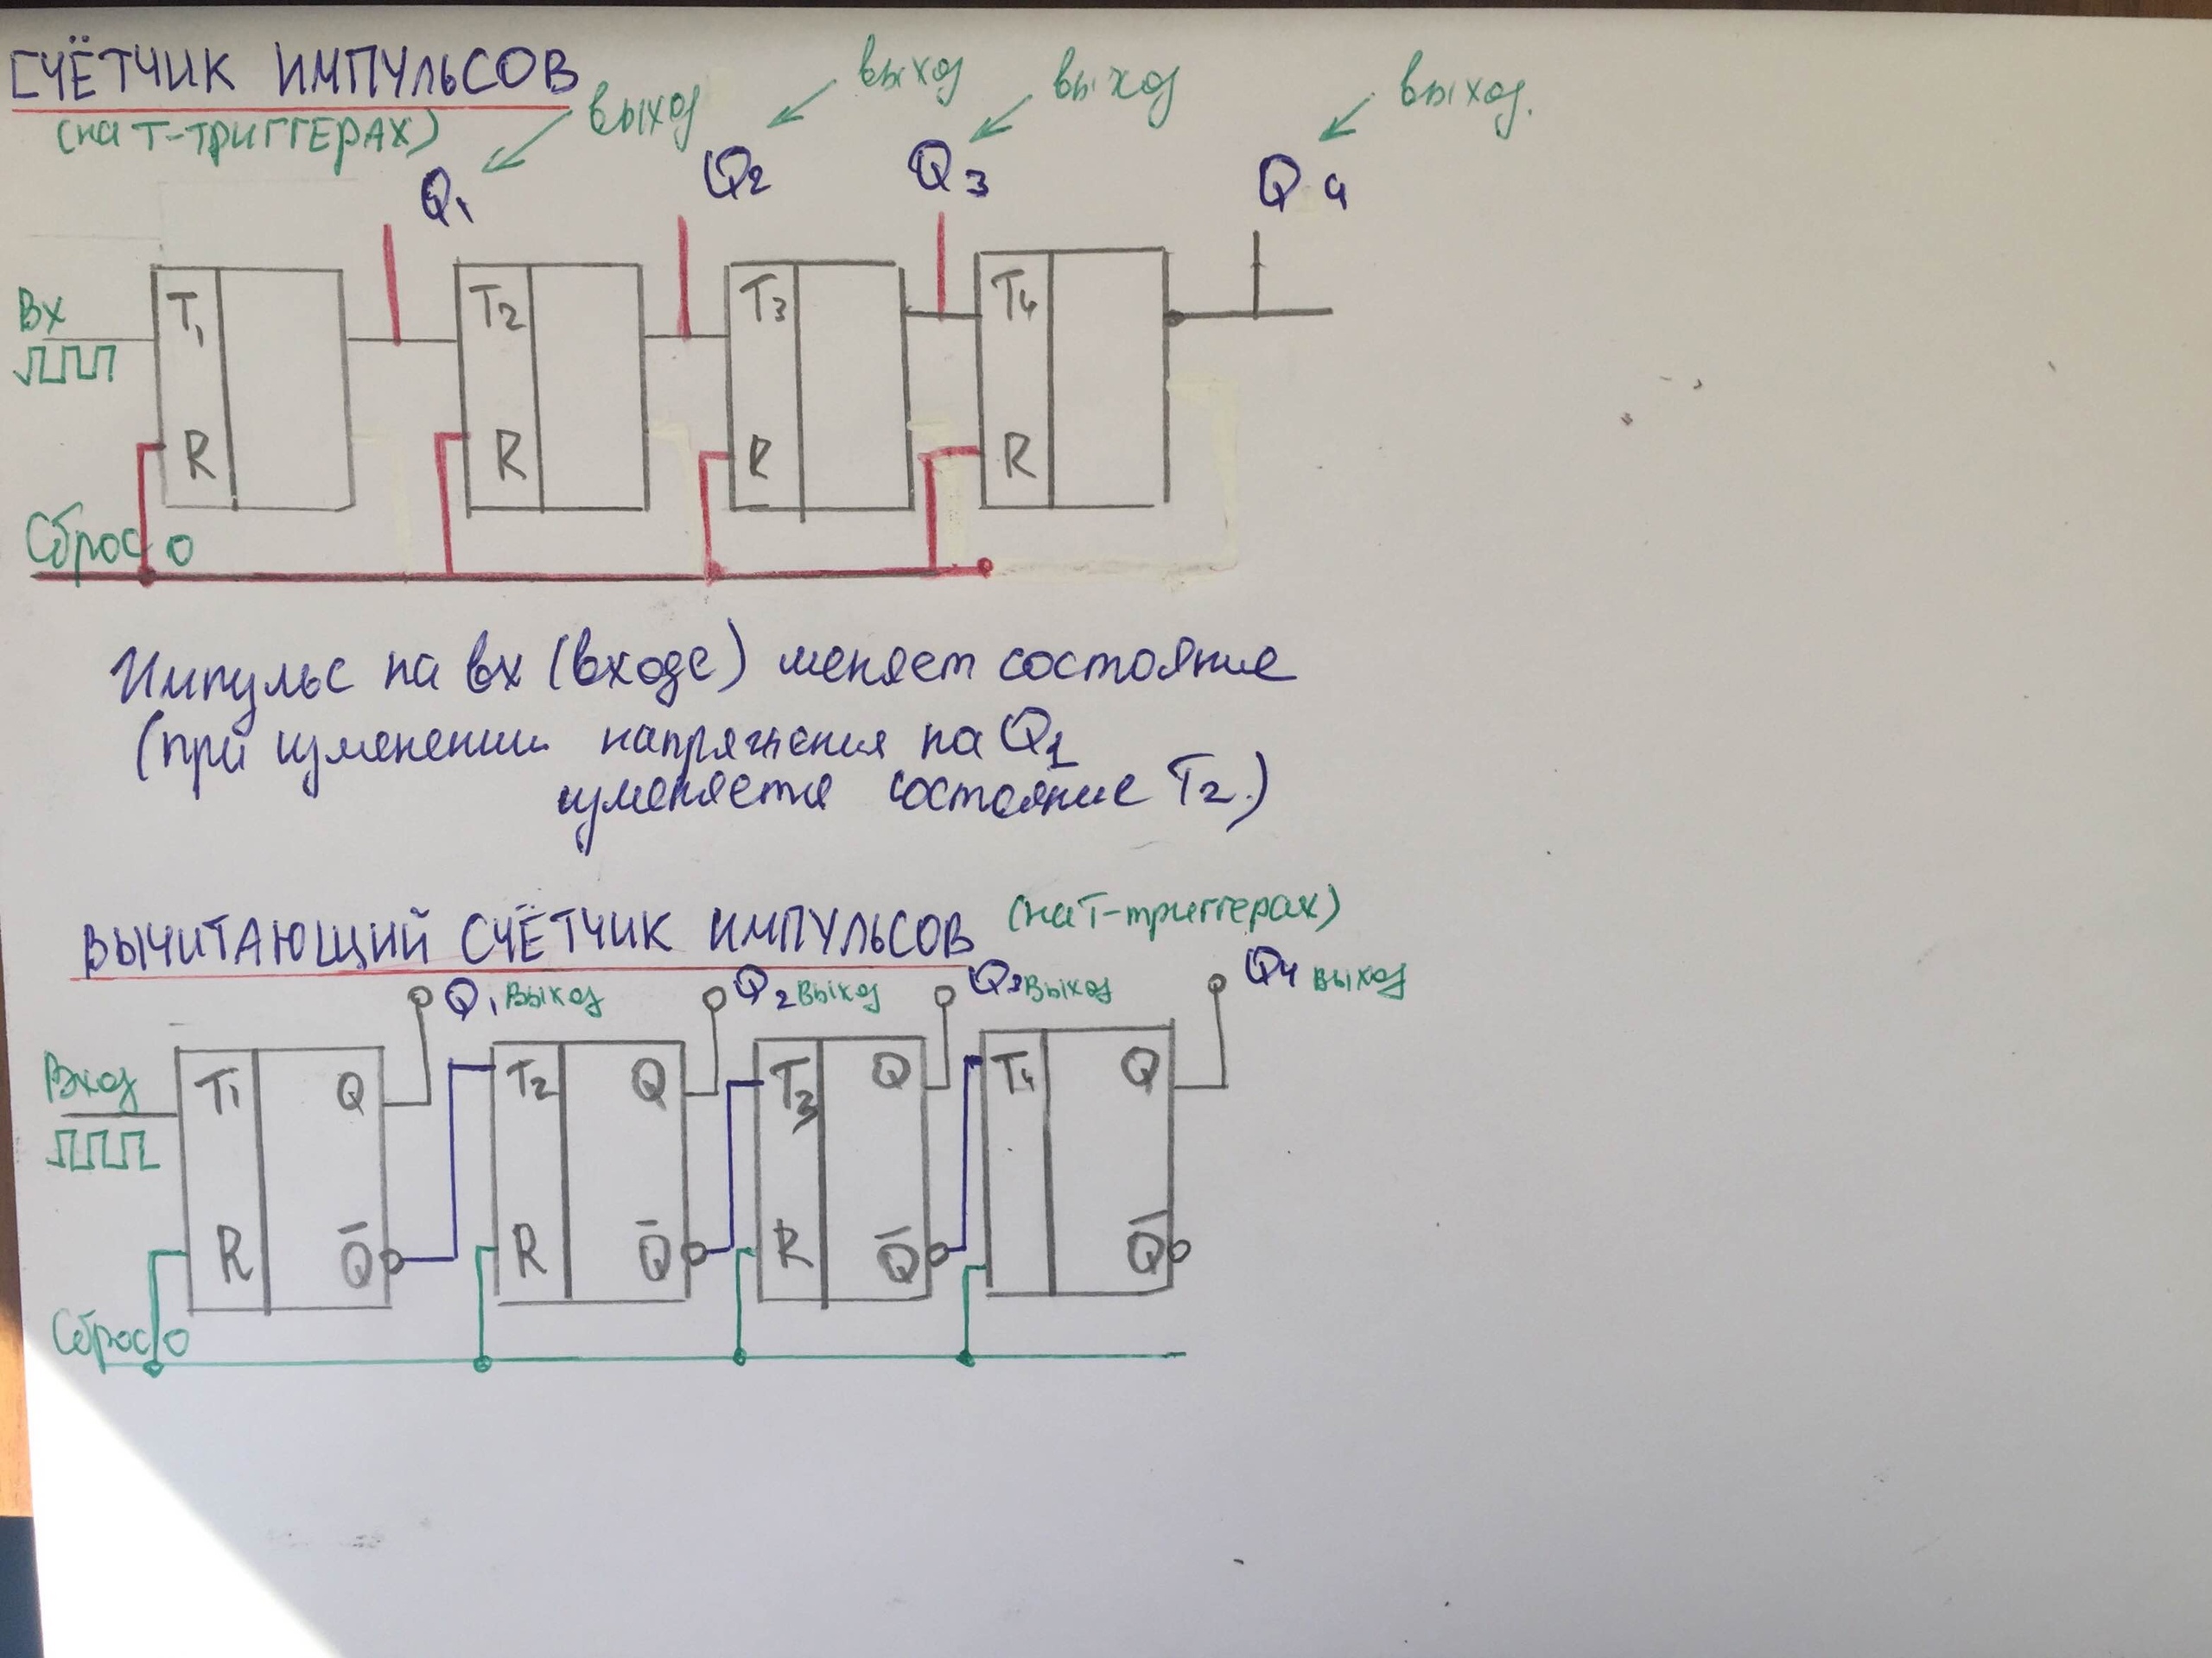 СЧЁТЧИК ИМПУЛЬСОВ
(на Т-ТРИГГЕРАХ)
выход выход выход выход.
Q1 Q2 Q3 Q4
Вх
T1 T2 T3 T4
R R R R
Сброс 0
Импульс на вх (входе) меняет состояние
(при изменении напряжения на Q1
изменяется состояние T2.)
ВЫЧИТАЮЩИЙ СЧЁТЧИК ИМПУЛЬСОВ (на Т-триггерах)
Q1 Выход Q2 Выход Q3 Выход Q4 Выход
Вход
T1 Q T2 Q T3 Q T4 Q
R Q̅ R Q̅ R Q̅ Q̅
Сброс 0